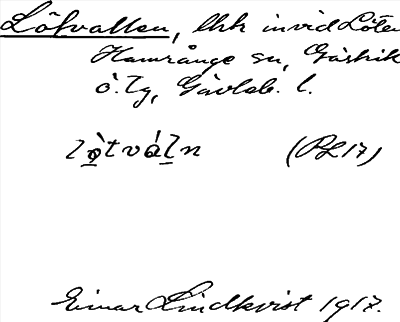 Lötvallen, lhk invid Löten
Hamrånge sn, Gästrik
ö. tg, Gävleb. l.
lȯ̱tváḻn (RL 17)
Einar Lindkvist 1917.